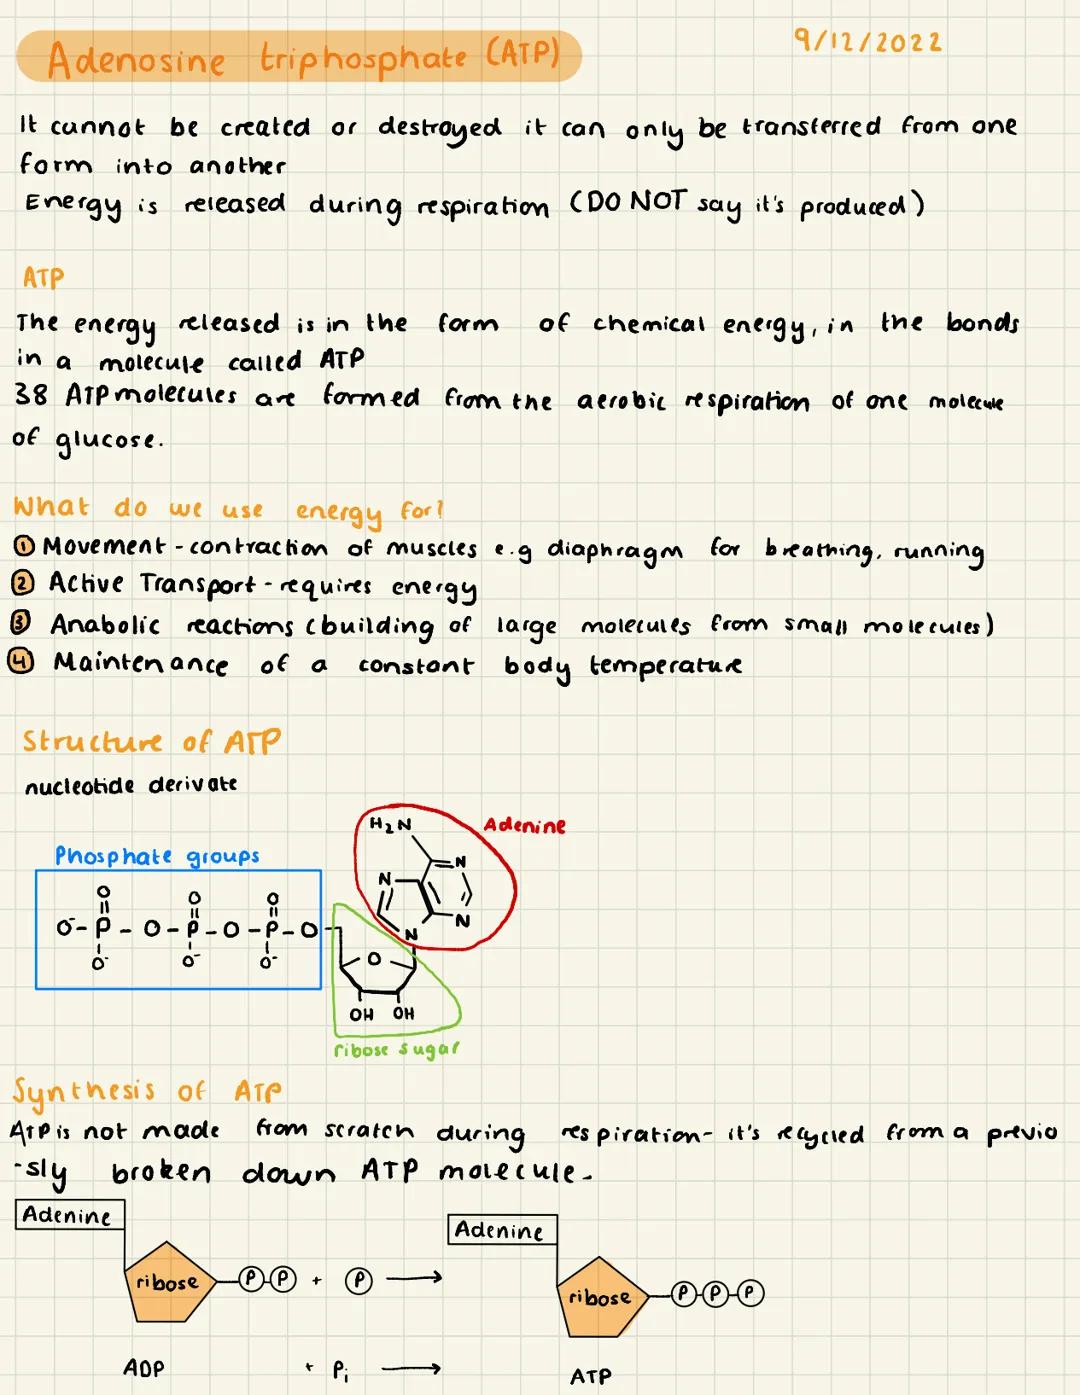 Adenosine triphosphate (ATP)
9/12/2022
It cannot be created or destroyed it can only be transferred from one
form into another
Energy is released during respiration (DO NOT say it's produced)
ATP
The energy released is in the form of chemical energy, in the bonds
in a molecule called ATP
38 ATP molecules are formed from the aerobic respiration of one molecule
of glucose.
What do we use energy for?
① Movement - contraction of muscles e.g diaphragm for breathing, running
② Active Transport - requires energy
③ Anabolic reactions (building of large molecules from small molecules)
④ Maintenance of a constant body temperature
Structure of ATP
nucleotide derivate
H₂N
Adenine
Phosphate groups
N
N
O O O
N
O⁻ - P - O - P - O - P - O
N
O⁻ O⁻ O⁻
O
OH OH
ribose sugar
Synthesis of ATP
ATP is not made from scratch during respiration - it's recycled from a previo
-sly broken down ATP molecule.
Adenine
Adenine
ribose P P + P →
ribose P P P
ADP + Pi →
ATP